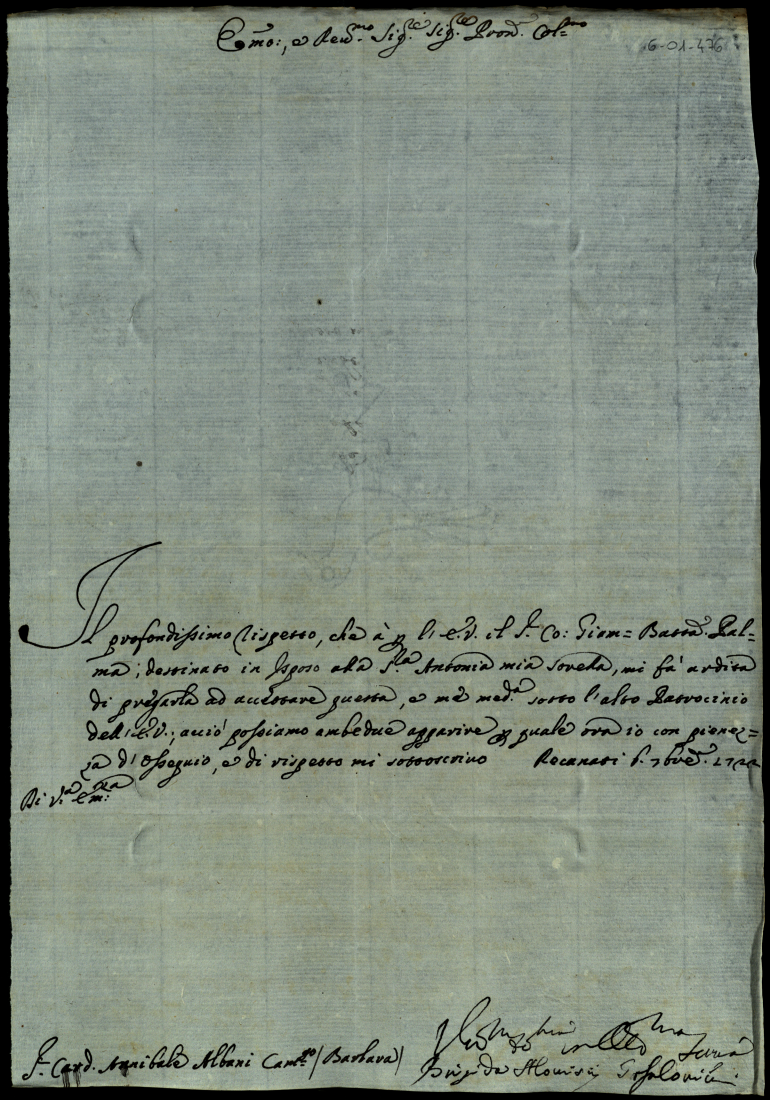 Emo:, e Reud.mo Sig.re Sig.re Pron. Col=mo
6-01-476
Il profondissimo rispetto, che à l'E.V. il S.r Co: Giam= Batta. Pal=
ma; destinato in Isposo alla S.ra Antonia mia sorella, mi fà ardita
di pregarla ad accettare questa, e me med.a sotto l'alto Patrocinio
dell'E.V.; acciò possiamo ambedue apparire quale ora io con pienez=
za d'Ossequio, e di rispetto mi sottoscrivo Recanati 6. 7bre. 1722
Di V.a Em.za
S.r Card. Annibale Albani Cam.go (Barbara)
Brigida Alouisi